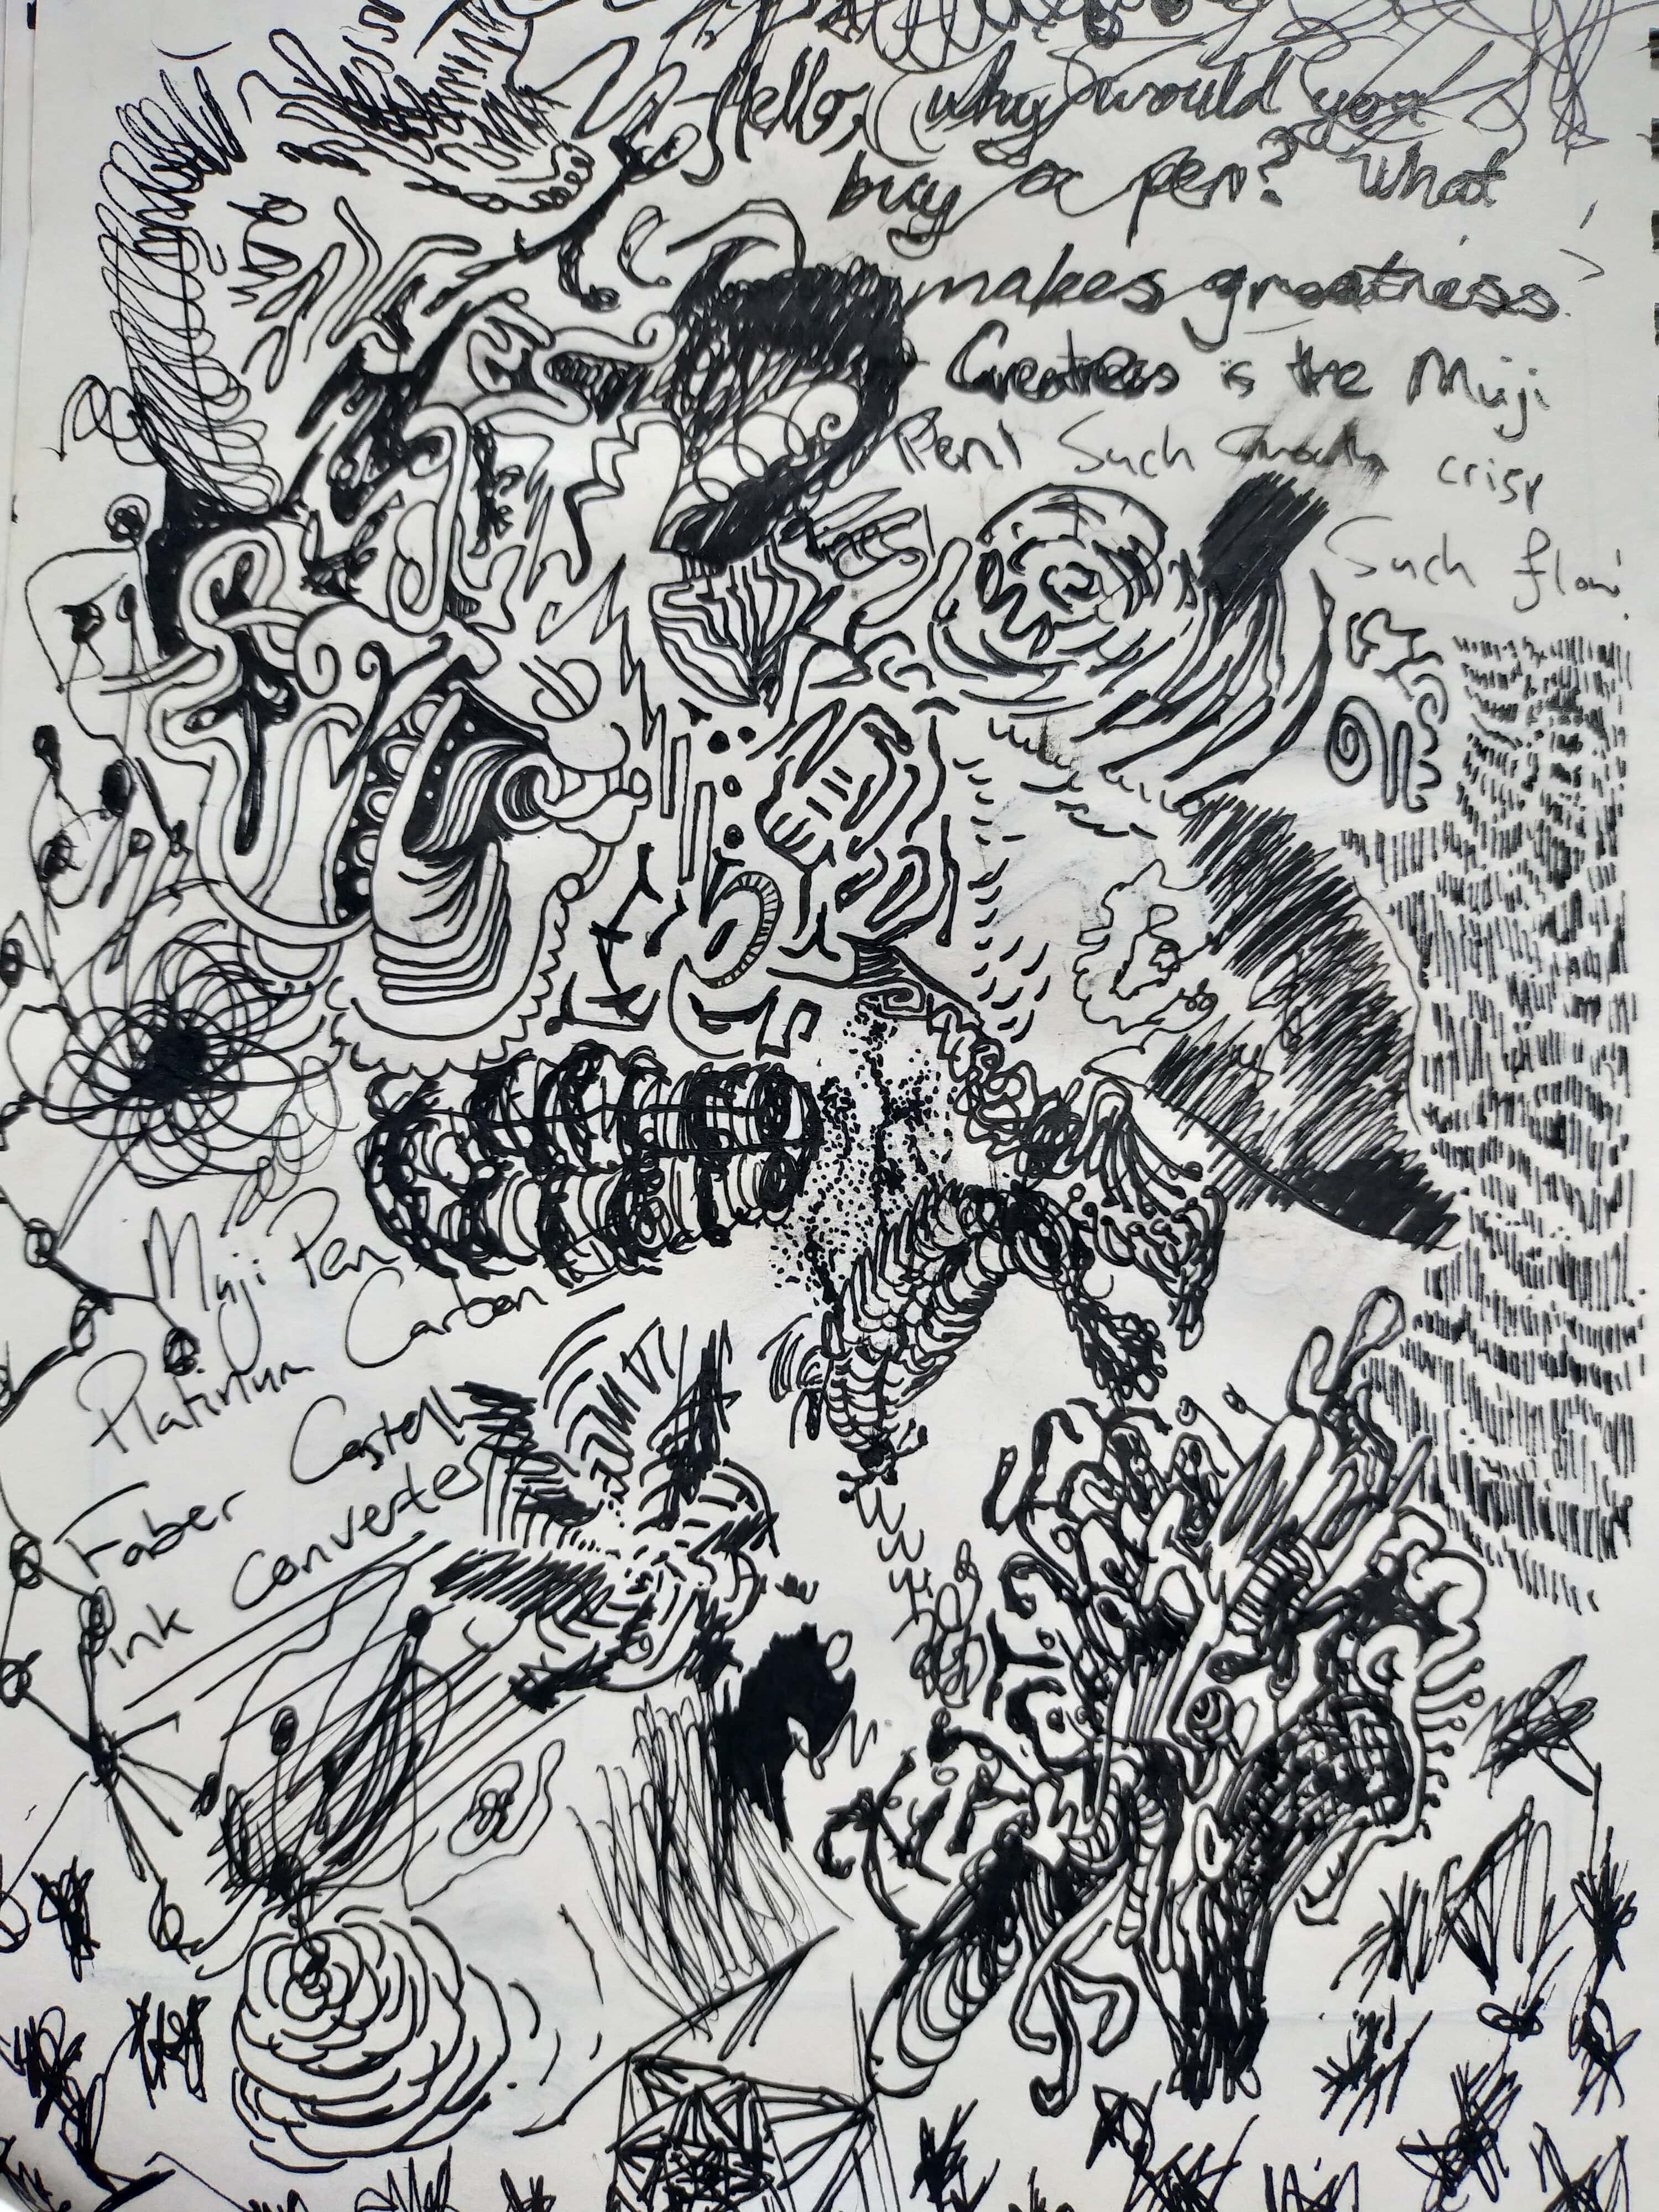 Hello, why would you
buy a pen? What
makes greatness.
Greatness is the Muji
Pen! Such smooth crisp
Such flow!
Muji Pen
Platinum Carbon Ink
Faber Castell
ink converter